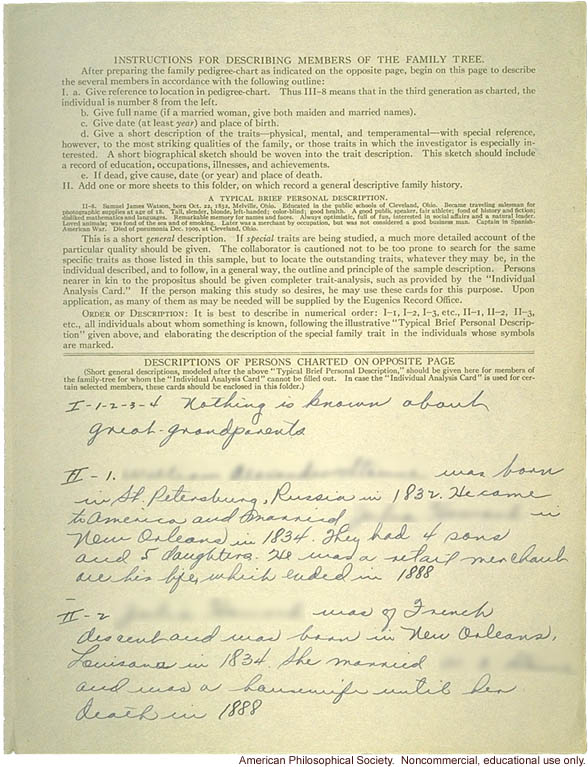 INSTRUCTIONS FOR DESCRIBING MEMBERS OF THE FAMILY TREE.
After preparing the family pedigree-chart as indicated on the opposite page, begin on this page to describe
the several members in accordance with the following outline:
I. a. Give reference to location in pedigree-chart. Thus III-8 means that in the third generation as charted, the
individual is number 8 from the left.
b. Give full name (if a married woman, give both maiden and married names).
c. Give date (at least year) and place of birth.
d. Give a short description of the traits—physical, mental, and temperamental—with special reference,
however, to the most striking qualities of the family, or those traits in which the investigator is especially in-
terested. A short biographical sketch should be woven into the trait description. This sketch should include
a record of education, occupations, illnesses, and achievements.
e. If dead, give cause, date (or year) and place of death.
II. Add one or more sheets to this folder, on which record a general descriptive family history.
A TYPICAL BRIEF PERSONAL DESCRIPTION.
II-6. Samuel James Watson, born Oct. 22, 1852, Melville, Ohio. Educated in the public schools of Cleveland, Ohio. Became traveling salesman for
photographic supplies at age of 18. Tall, slender, blonde, left-handed; color-blind; good health. A good public speaker, fair athlete; fond of history and fiction;
disliked mathematics and languages. Remarkable memory for names and faces. Always optimistic, full of fun, interested in social affairs and a natural leader.
Loved animals. Was fond of the sea and of smoking. Later was a merchant by occupation, but was not considered a good business man. Captain in Spanish-
American War. Died of pneumonia Dec. 1909, at Cleveland, Ohio.
This is a short general description. If special traits are being studied, a much more detailed account of the
particular quality should be given. The collaborator is cautioned not to be too prone to search for the same
specific traits as those listed in this sample, but to locate the outstanding traits, whatever they may be, in the
individual described, and to follow, in a general way, the outline and principle of the sample description. Persons
nearer in kin to the propositus should be given completer trait-analysis, such as provided by the "Individual
Analysis Card." If the person making this study so desires, he may use these cards for this purpose. Upon
application, as many of them as may be needed will be supplied by the Eugenics Record Office.
ORDER OF DESCRIPTION: It is best to describe in numerical order: I-1, I-2, I-3, etc., II-1, II-2, II-3,
etc., all individuals about whom something is known, following the illustrative "Typical Brief Personal Descrip-
tion" given above, and elaborating the description of the special family trait in the individuals whose symbols
are marked.
DESCRIPTIONS OF PERSONS CHARTED ON OPPOSITE PAGE
(Short general descriptions, modeled after the above "Typical Brief Personal Description," should be given here for members of
the family-tree for whom the "Individual Analysis Card" cannot be filled out. In case the "Individual Analysis Card" is used for cer-
tain selected members, these cards should be enclosed in this folder.)
I-1-2-3-4 Nothing is known about
great-grandparents
II-1. was born
in St. Petersburg, Russia in 1832. He came
to America and married in
New Orleans in 1834. They had 4 sons
and 5 daughters. He was a retail merchant
all his life, which ended in 1888
II-2 was of French
descent and was born in New Orleans,
Louisana in 1834. She married
and was a housewife until her
death in 1888
American Philosophical Society. Noncommercial, educational use only.